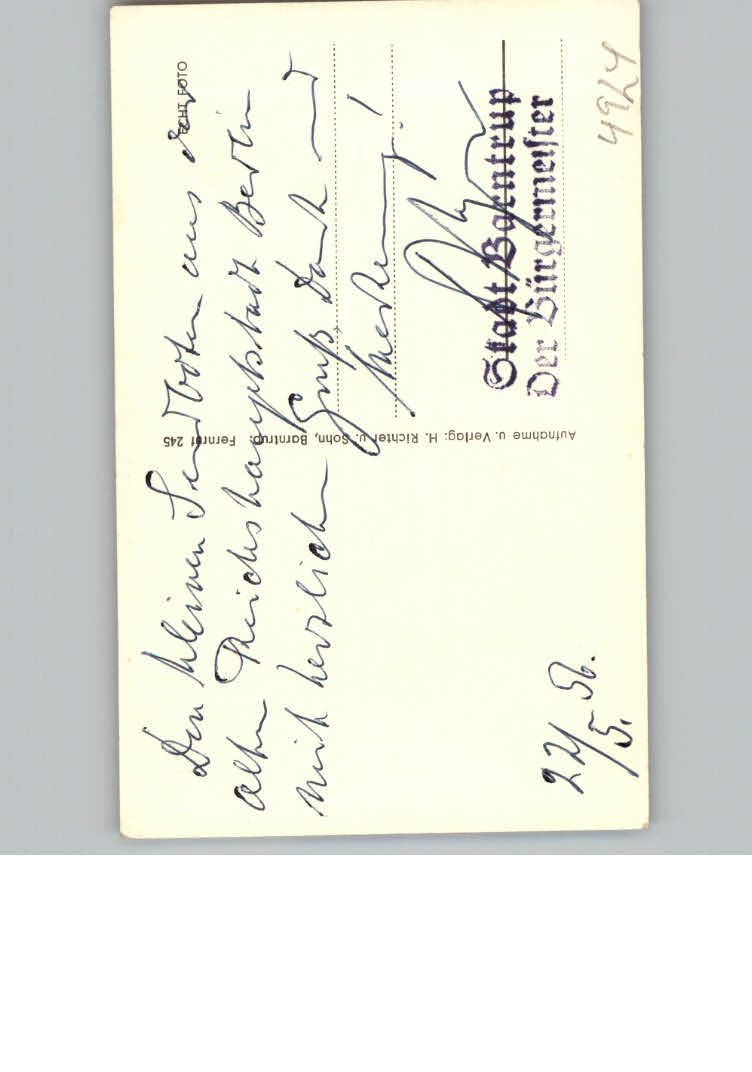 Den kleinen Sendboten aus der
alten Reichshauptstadt Berlin
mit herzlich Gruß, Dank und
22/5. 56.
Stadt Barntrup
Der Bürgermeister
ECHT FOTO
Aufnahme u. Verlag: H. Richter u. Sohn, Barntrup, Fernruf 245
4924